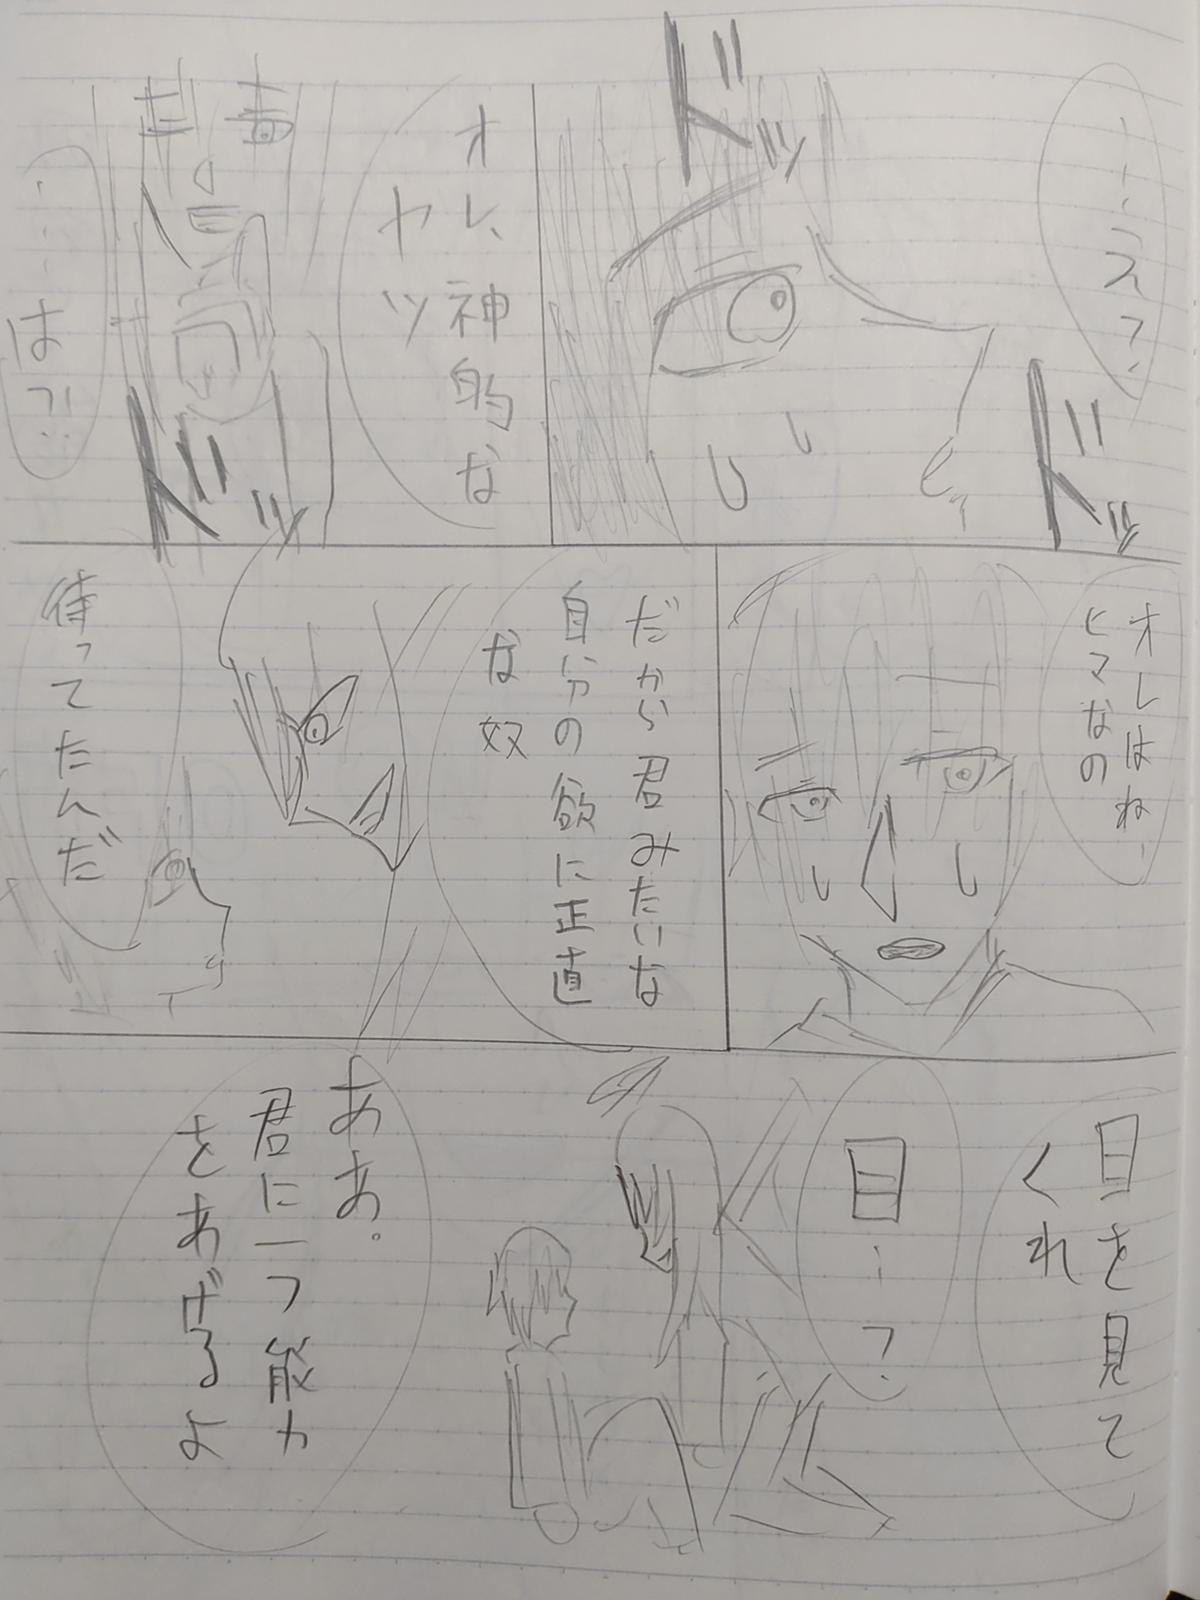 …えっ
ドッ
ドッ
オレ、神的な
ヤツ
ドッ
…は?!…
オレはね…
ヒマなの
だから君みたいな
自分の欲に正直
な奴
待ってたんだ
目を見て
くれ
目…?
ああ。
君に一つ能力
をあげるよ